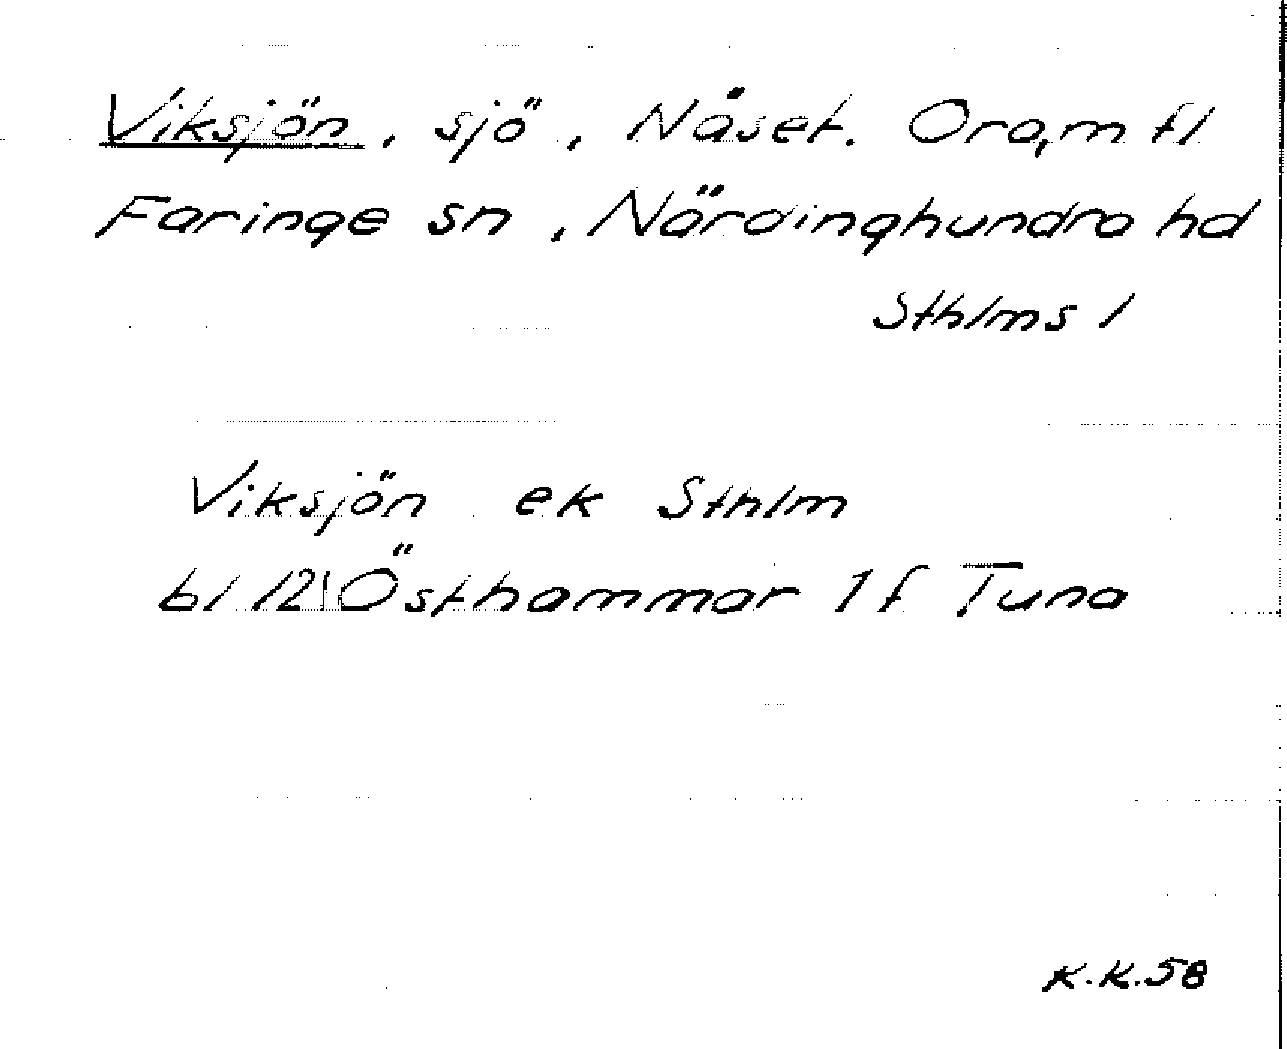 Viksjön, sjö, Nåset. Ora, m fl
Faringe sn, Närdinghundra hd
Sthlms l
Viksjön ek Sthlm
bl 12 Östhammar 1 f Tuna
K.K.58